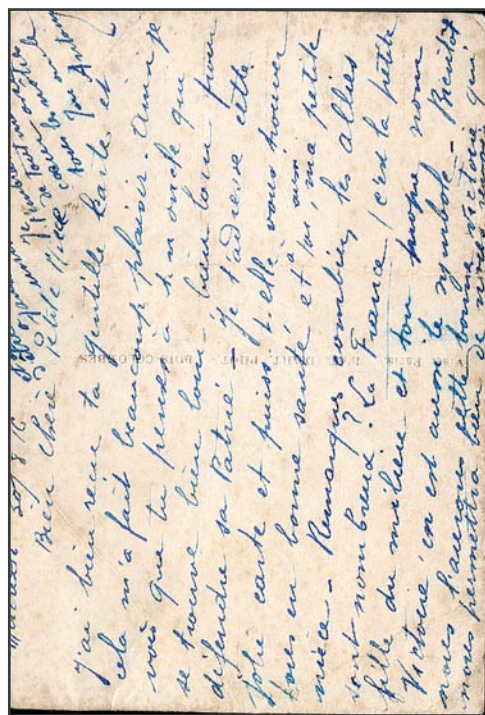 20/8/16
Bien Chère Petite Nièce
J'ai bien reçue ta gentille carte et
cela m'a fait beaucoup plaisir. Ainsi je
vois que tu penses à ton oncle qui
se trouve bien loin - bien loin pour
défendre sa Patrie. Je t'adresse cette
jolie carte et puisse-t-elle vous trouver
tous en bonne santé et toi, ma petite
nièce - Remarque combien les alliés
sont nombreux? La France (c'est la petite
fille du milieu et ton propre nom
Victoire en est aussi le symbole - Bientôt
nous l'aurons cette bonne victoire qui
nous permettra bien de nous réunir
tout mon
de